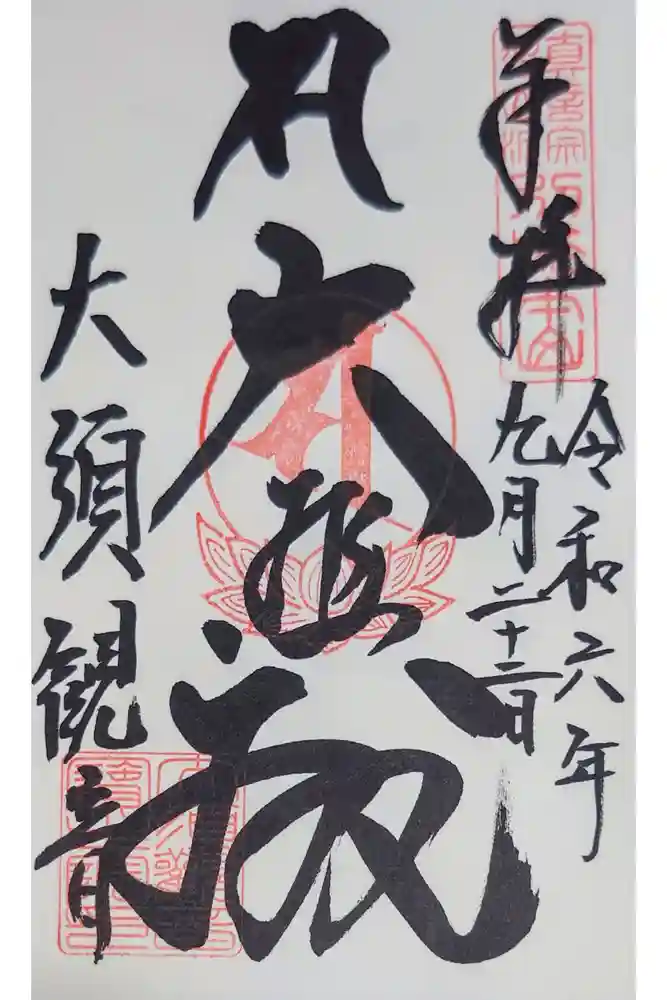 奉拝
令和六年
九月二十三日
真言宗
智山派
別格本山
大悲殿
大須観音